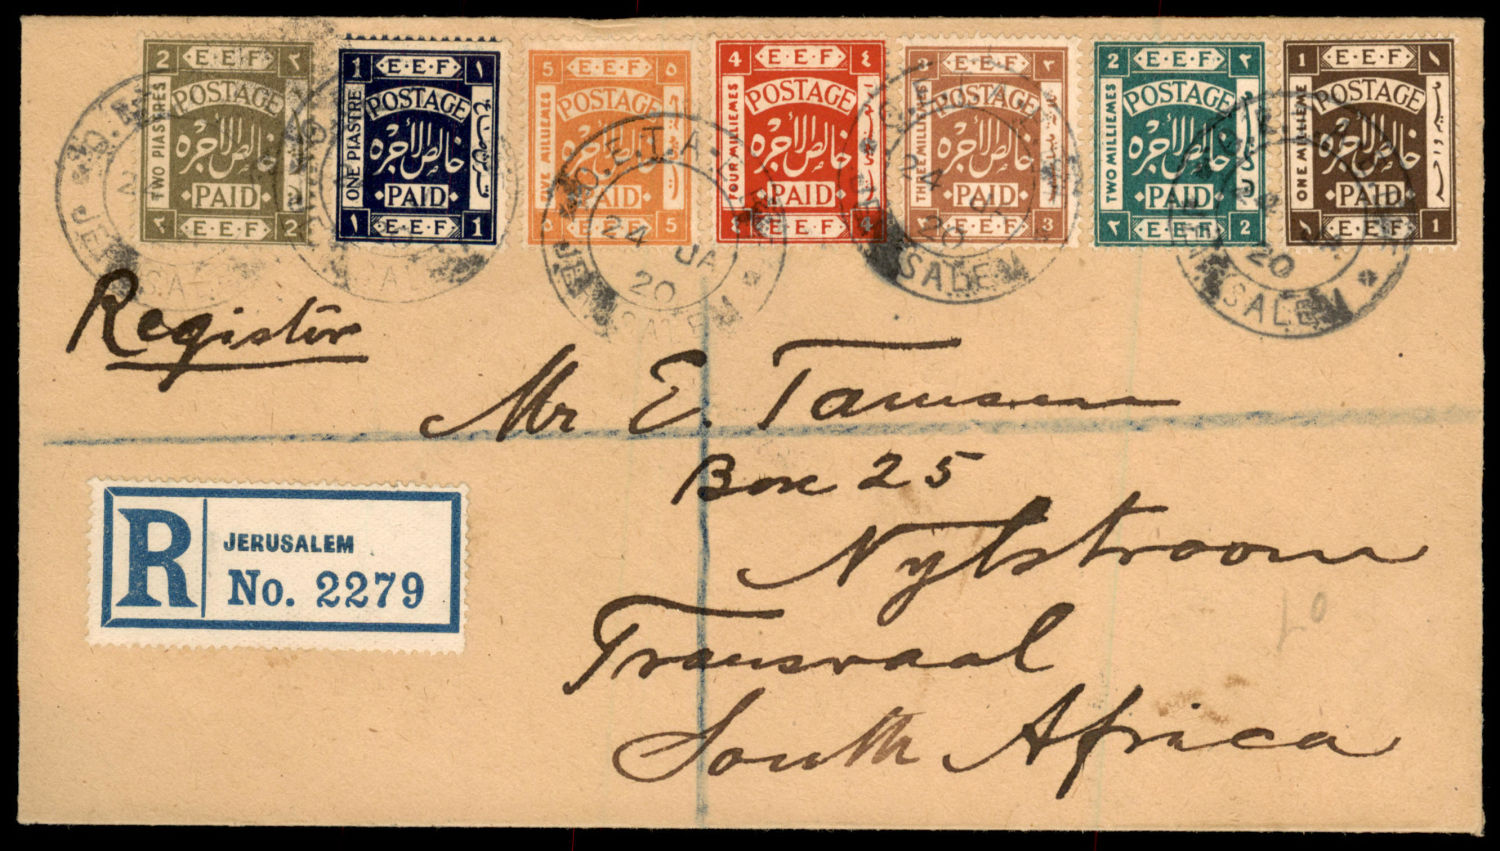 2 E·E·F ٢
POSTAGE
TWO PIASTRES
خالص الأجرة
PAID
٢ E·E·F 2
1 E·E·F ١
POSTAGE
ONE PIASTRE
خالص الأجرة
PAID
١ E·E·F 1
5 E·E·F ٥
POSTAGE
FIVE MILLIEMES
خالص الأجرة
PAID
٥ E·E·F 5
4 E·E·F ٤
POSTAGE
FOUR MILLIEMES
خالص الأجرة
PAID
٤ E·E·F 4
3 E·E·F ٣
POSTAGE
THREE MILLIEMES
خالص الأجرة
PAID
٣ E·E·F 3
2 E·E·F ٢
POSTAGE
TWO MILLIEMES
خالص الأجرة
PAID
٢ E·E·F 2
1 E·E·F ١
POSTAGE
ONE MILLIEME
خالص الأجرة
PAID
١ E·E·F 1
24 JA
20
JERUSALEM
Register
Mr E. Tamsen
Box 25
Nylstroom
Transvaal
South Africa
R
JERUSALEM
No. 2279